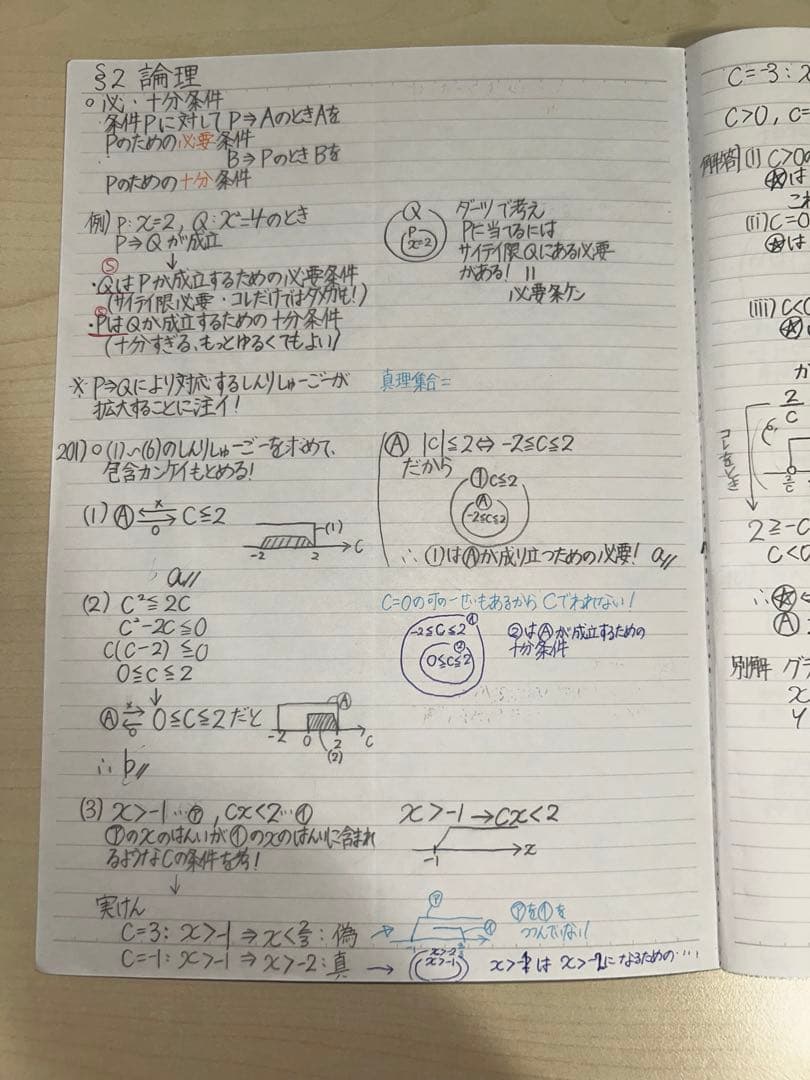 §2 論理
○必・十分条件
条件Pに対してP⇒AのときAを
Pのための必要条件
B⇒PのときBを
Pのための十分条件
例) P:x=2, Q:x²=4のとき
P⇒Qが成立
↓
Ⓢ
・QはPが成立するための必要条件
(サイテイ限必要・コレだけではダメカも!)
・PはQが成立するための十分条件
(十分すぎる、もっとゆるくてもよい)
Q
P
x=2
ダーツで考え
Pに当てるには
サイテイ限Qにある必要
がある! 〃
必要条ケン
※ P⇒Qにより対応するしんりしゅーごーが
拡大することに注イ!
真理集合=
201) ○(1)~(6)のしんりしゅーごーを求めて、
包含カンケイもとめる!
(1) Ⓐ ⇄ C≦2
×
○
(1)
-2 2 C
a〃
Ⓐ |C|≦2⇔-2≦C≦2
だから
①C≦2
Ⓐ
-2≦C≦2
∴①はⒶが成り立つための必要! a〃
(2) C²≦2C
C²-2C≦0
C(C-2)≦0
0≦C≦2
↓
Ⓐ ⇄ 0≦C≦2だと
×
○
Ⓐ
-2 0 2 C
(2)
∴ b〃
C=0の可のーせいもあるからCでわれない!
-2≦C≦2
②
0≦C≦2
②はⒶが成立するための
十分条件
(3) x>-1…㋐, Cx<2…㋑
㋐のxのはんいが㋑のxのはんいに含まれ
るようなCの条件を考!
↓
x>-1→Cx<2
-1 x
実けん
C=3: x>-1⇒x<2/3:偽
C=-1: x>-1⇒x>-2:真
㋐
㋑
㋐を㋑を
つつんでいない!
x>-2
x>-1
になるための…
C=-3: x
C>0, C=
解答 (i) C>0の
☆は
これ
(ii) C=0
☆は
(iii) C<0
☆
か
2
C
2≧-C
C<0
∴☆⇐
Ⓐ
別解 グラ
x
y